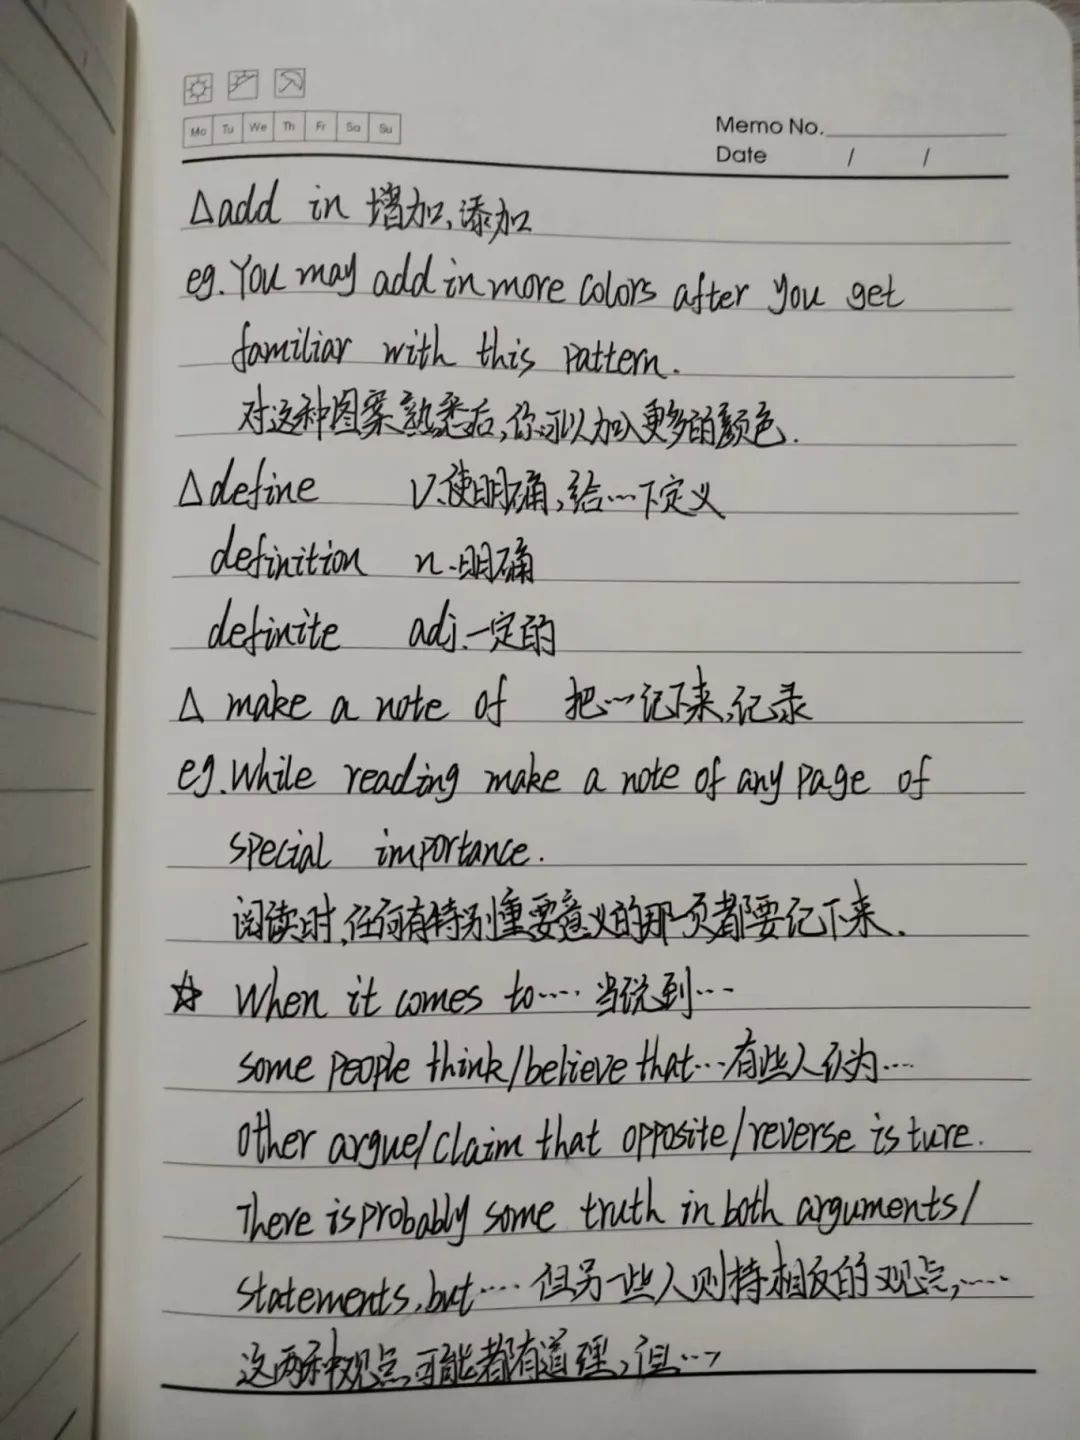 Mo Tu We Th Fr Sa Su
Memo No.
Date / /
△add in 增加,添加
eg. You may add in more colors after you get
familiar with this pattern.
对这种图案熟悉后,你可以加入更多的颜色.
△define v.使明确,给…下定义
definition n.明确
definite adj.一定的
△ make a note of 把…记下来,记录
eg. While reading make a note of any page of
special importance.
阅读时,任何有特别重要意义的那一页都要记下来.
☆ When it comes to…… 当说到…
some people think/believe that…有些人认为……
Other argue/claim that opposite/reverse is ture.
There is probably some truth in both arguments/
statements, but…… 但另一些人则持相反的观点,……
这两种观点可能都有道理,但…